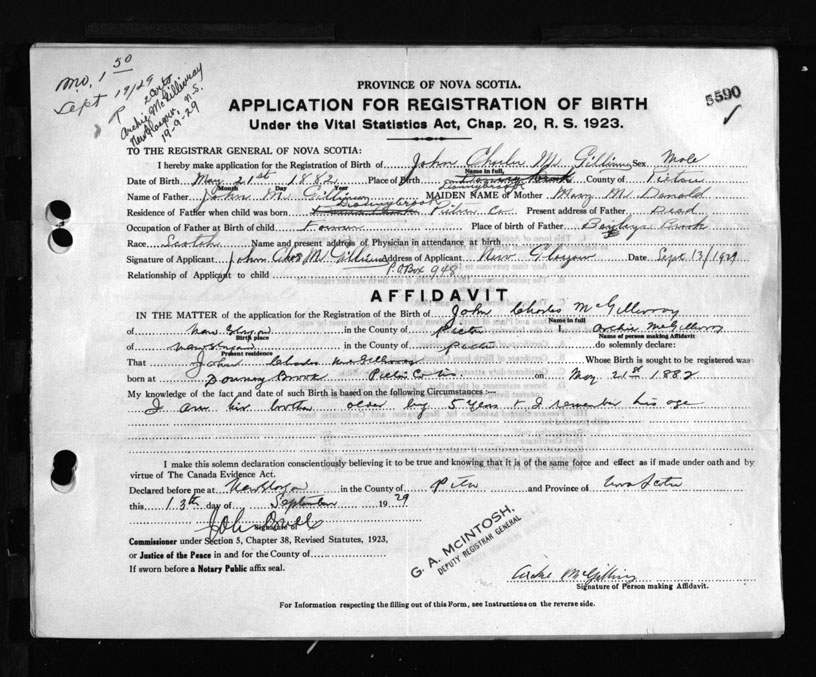 MO. 1 50
Sept 19/29
Archie McGillivray
New Glasgow, N.S.
19-9-29
5590
PROVINCE OF NOVA SCOTIA.
APPLICATION FOR REGISTRATION OF BIRTH
Under the Vital Statistics Act, Chap. 20, R. S. 1923.
TO THE REGISTRAR GENERAL OF NOVA SCOTIA:
I hereby make application for the Registration of Birth of John Charles Mc Gillivray Sex Male
Name in full
Date of Birth May 21st 1882 Place of Birth County of Pictou
Month Day Year
Name of Father John Mc Gillivray MAIDEN NAME of Mother Mary Mc Donald
Residence of Father when child was born Pictou Co. Present address of Father Dead
Occupation of Father at Birth of child Farmer Place of birth of Father Brook
Race Scotch Name and present address of Physician in attendance, at birth
Signature of Applicant John Chas McGillivray Address of Applicant New Glasgow Date Sept 13/1929
Relationship of Applicant to child P.O Box 948
AFFIDAVIT
IN THE MATTER of the application for the Registration of the Birth of John Charles McGillivray
Name in full
of New Glasgow in the County of Pictou I, Archie McGillivray
Birth place Name of person making Affidavit
of New Glasgow in the County of Pictou do solemnly declare:
Present residence
That John Charles McGillivray Whose Birth is sought to be registered was
born at Brook Pictou Co. N.S. on May 21st 1882
My knowledge of the fact and date of such Birth is based on the following Circumstances :—
I am his brother older by 5 years & I remember his age
I make this solemn declaration conscientiously believing it to be true and knowing that it is of the same force and effect as if made under oath and by
virtue of The Canada Evidence Act.
Declared before me at New Glasgow in the County of Pictou and Province of Nova Scotia
this 13th day of September 1929
Signature of
Commissioner under Section 5, Chapter 38, Revised Statutes, 1923,
or Justice of the Peace in and for the County of
If sworn before a Notary Public affix seal.
G. A. McINTOSH,
DEPUTY REGISTRAR GENERAL
Archie McGillivray
Signature of Person making Affidavit.
For Information respecting the filling out of this Form, see Instructions on the reverse side.